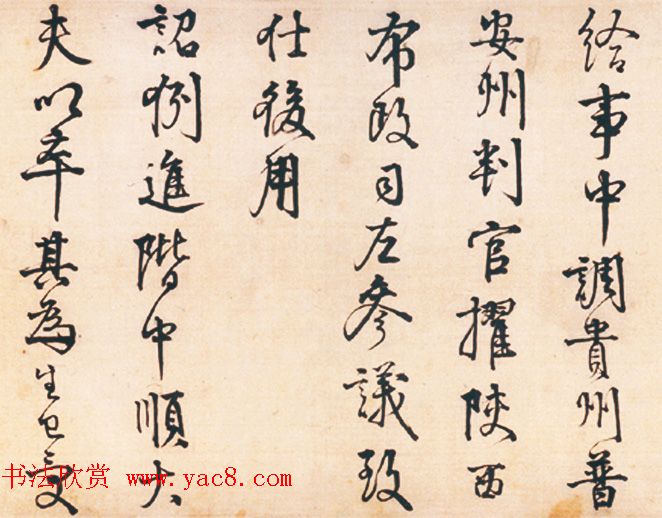 给事中調貴州普
安州判官擢陝西
布政司左參議致
仕後用
詔例進階中順大
夫以卒其為生也受
书法欣赏 www.yac8.com